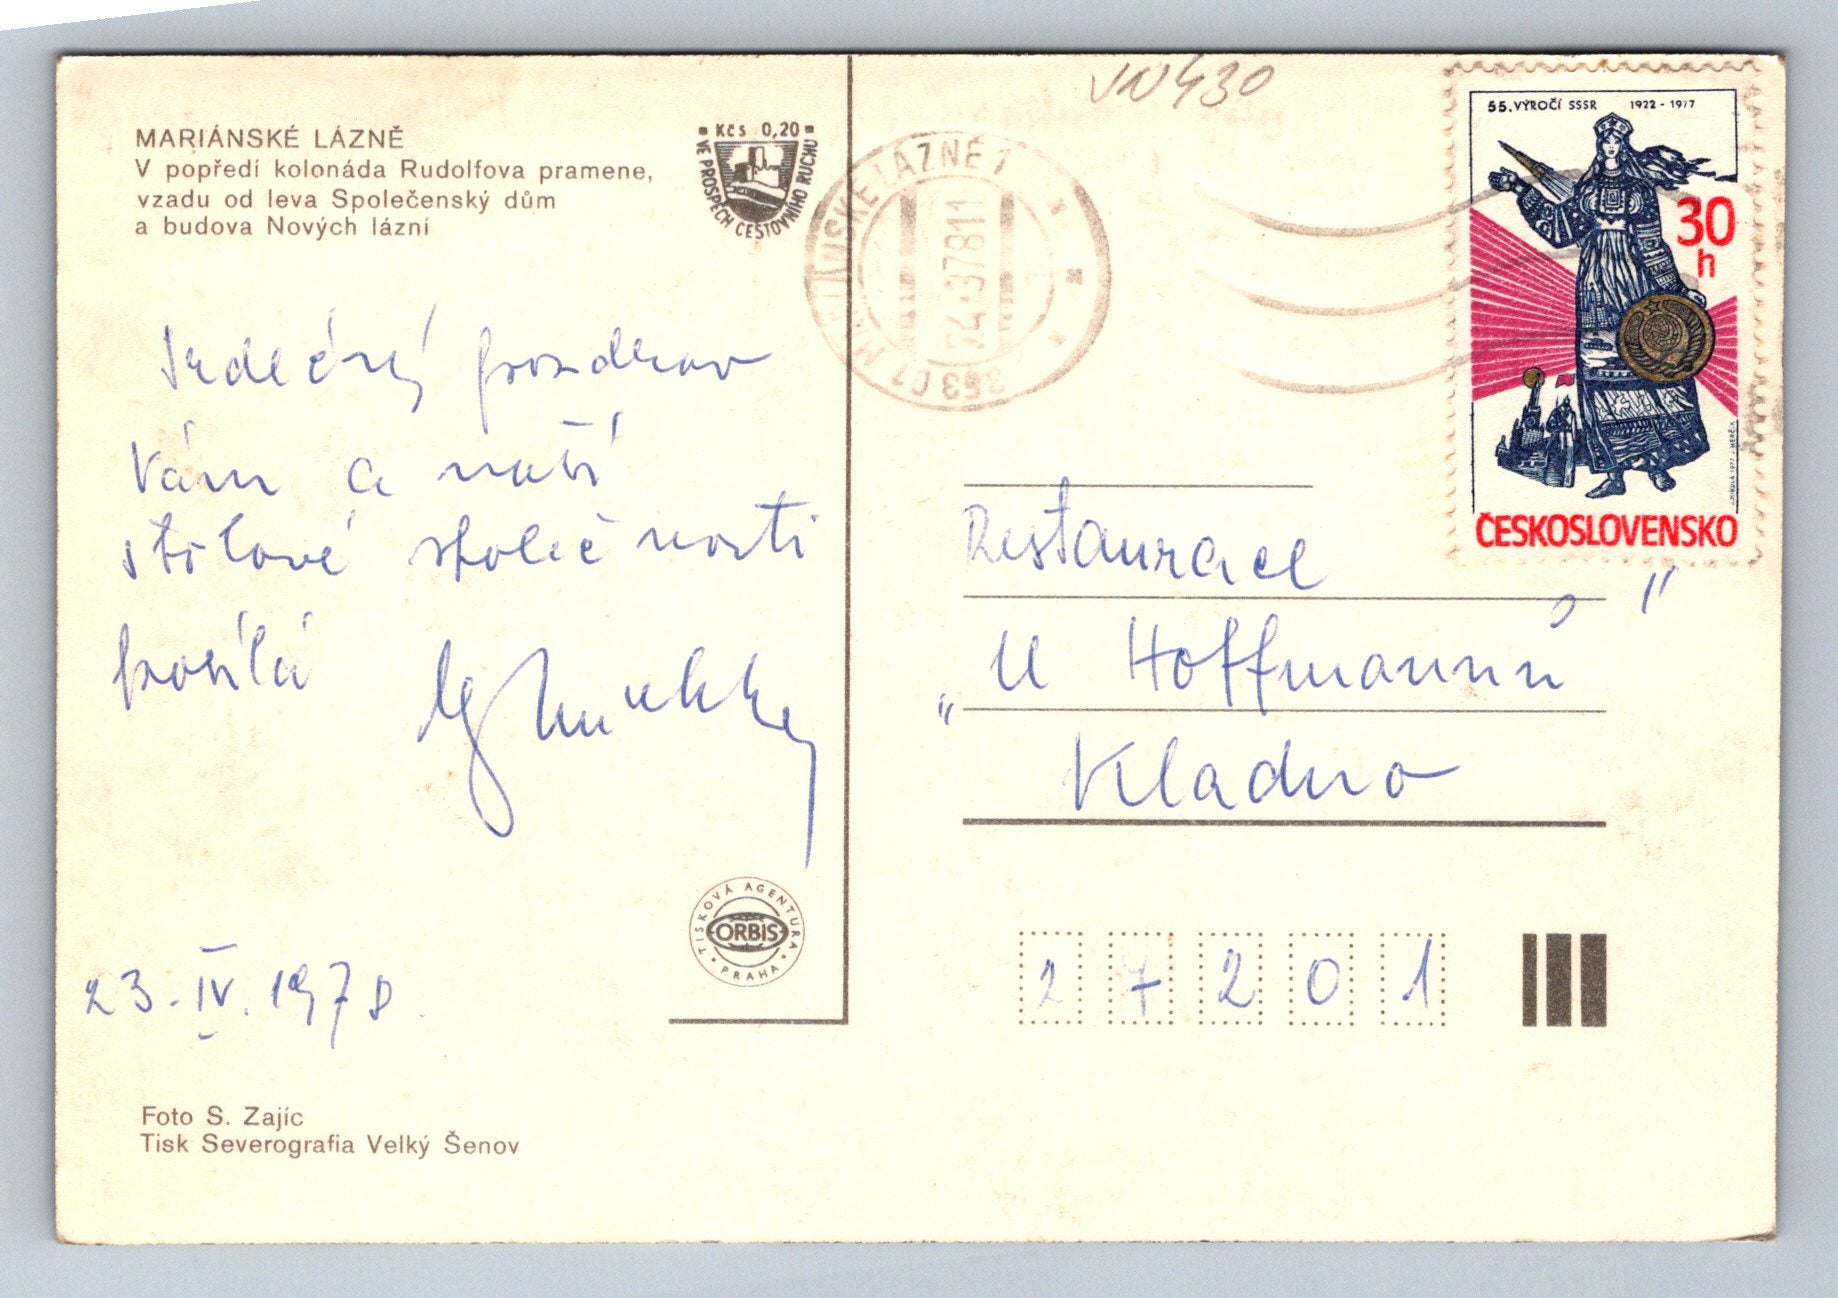 VN430
MARIÁNSKÉ LÁZNĚ
V popředí kolonáda Rudolfova pramene,
vzadu od leva Společenský dům
a budova Nových lázní
Kčs 0,20
VE PROSPĚCH CESTOVNÍHO RUCHU
MARIÁNSKÉ LÁZNĚ 1
363 01
55. VÝROČÍ SSSR 1922 - 1977
30
h
ČESKOSLOVENSKO
Srdečný pozdrav
Vám a naší
stolové společnosti
posílá
23. IV. 1978
Restaurace
„U Hoffmannů”
Kladno
27201
TISKOVÁ AGENTURA
ORBIS
PRAHA
Foto S. Zajíc
Tisk Severografia Velký Šenov